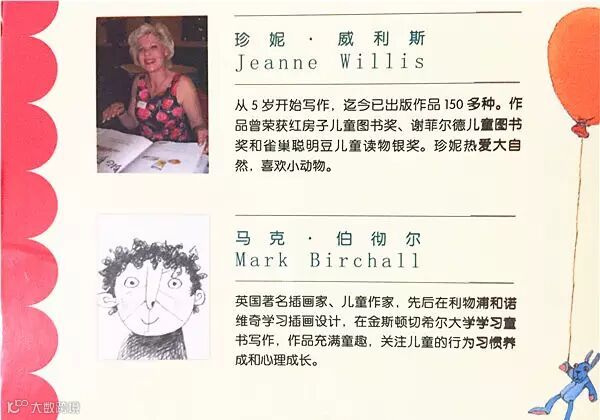 珍妮·威利斯
Jeanne Willis
从5岁开始写作，迄今已出版作品150多种。作
品曾荣获红房子儿童图书奖、谢菲尔德儿童图书
奖和雀巢聪明豆儿童读物银奖。珍妮热爱大自
然，喜欢小动物。
马克·伯彻尔
Mark Birchall
英国著名插画家、儿童作家，先后在利物浦和诺
维奇学习插画设计，在金斯顿切希尔大学学习童
书写作，作品充满童趣，关注儿童的行为习惯养
成和心理成长。
大数跨境